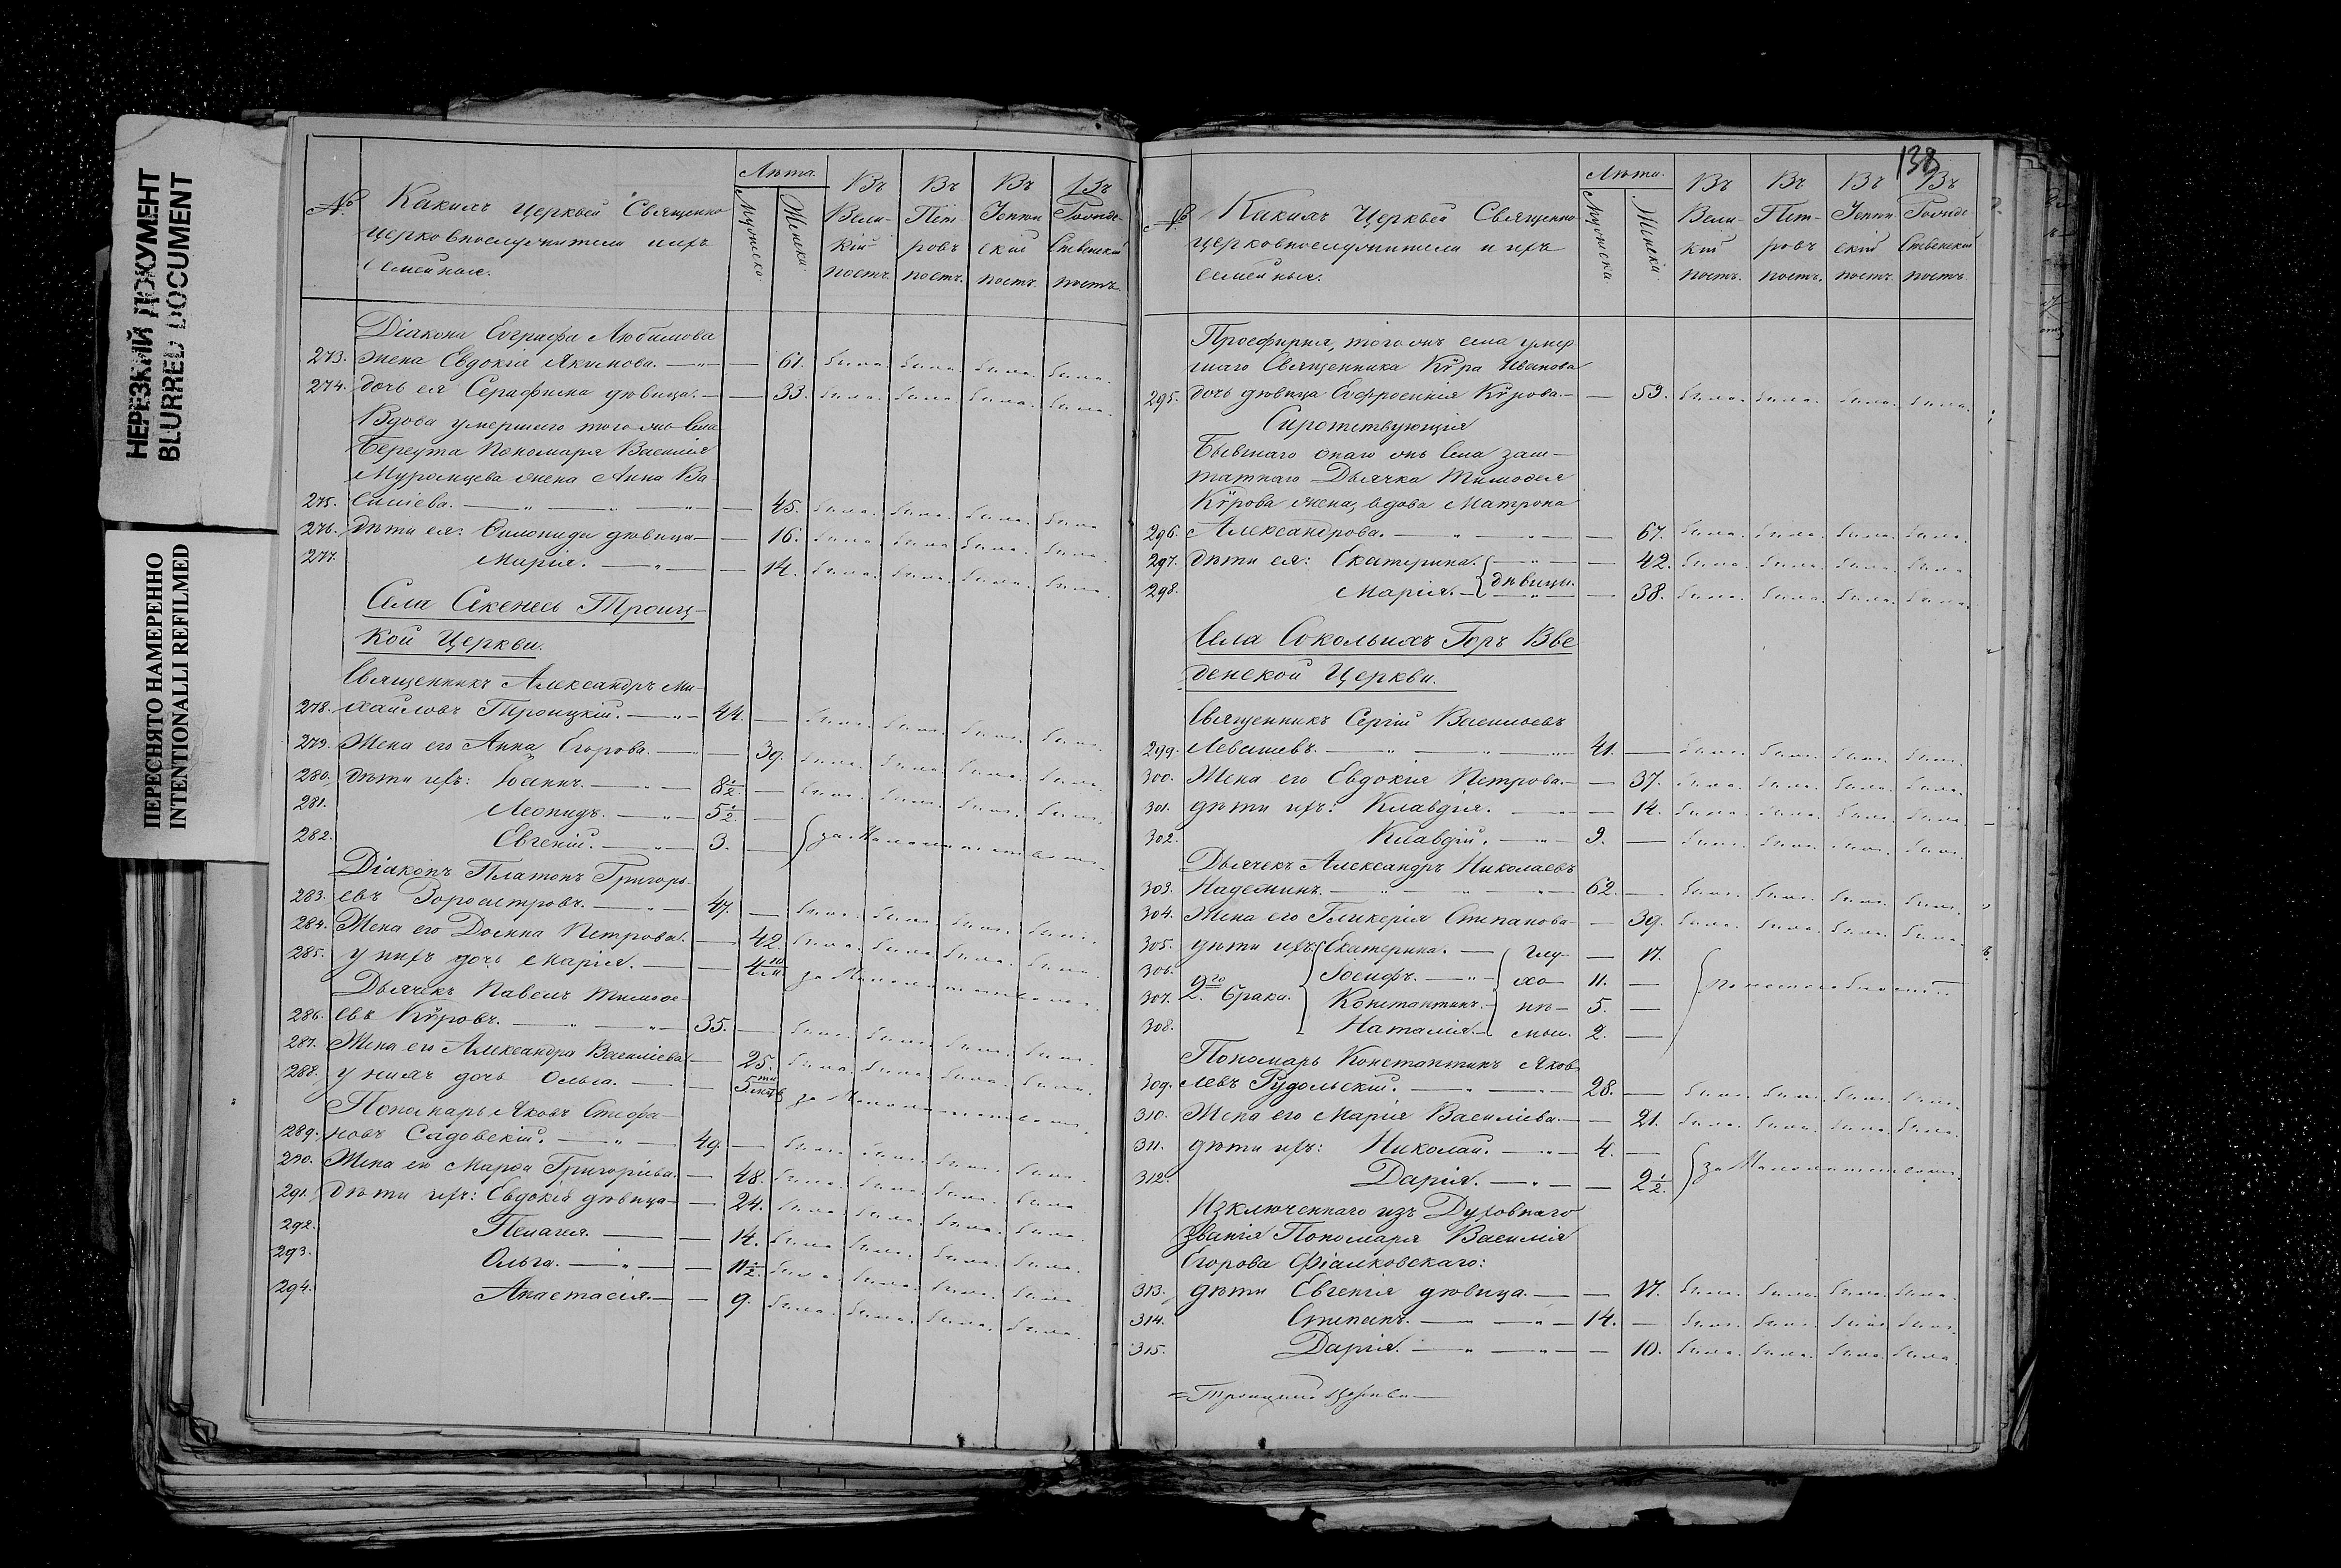 НЕРЕЗКИЙ ДОКУМЕНТ
BLURRED DOCUMENT
ПЕРЕСНЯТО НАМЕРЕННО
INTENTIONALLI REFILMED
№ Какихъ церквей Священно Лѣта. Въ Въ Въ Въ
церковнослужители и ихъ Мужеска Женска Вели- Пет Успен Рождe-
семейные. кій ровъ скій ственскій
постъ. постъ. постъ. постъ.
Діакона Евграфа Любимова
273. жена Евдокія Якимова. — — 61. была. была. была. была.
274. дочь ея Серафима дѣвица. — — 33. была. была. была. была.
Вдова умершаго того же села
Береута Пономаря Василія
Муромцева жена Анна Ва
275. силіева. — — 45. была. была. была. была
276. дѣти ея: дѣвица — — 16. была. была. была. была.
277. Марія. — — 14. была. была. была. была.
Села Секенесь Троиц-
кой Церкви.
Священникъ Александръ Ми-
278. хайловъ Троицкій. — 44. — былъ. былъ. былъ. былъ.
279. Жена его Анна Егорова. — — 39. была. была. была. была.
280. дѣти ихъ: Іоаннъ. — 8½. — былъ. былъ. былъ. былъ.
281. Леонидъ. — 5½. —
282. Евгеній. — 3. — за малолѣтствомъ.
Діаконъ Платонъ Григорь-
283. евъ Зороастровъ. — 47. — былъ. былъ. былъ. былъ.
284. Жена его Домна Петрова. — 42. была. была. была. была.
285. у нихъ дочь Марія. — — за малолѣтствомъ.
Дьячекъ Павелъ Тимоѳе-
286. евъ Кѵровъ. — 35. — былъ. былъ. былъ. былъ.
287. Жена его Александра Василіева. — 25. была. была. была. была.
288. у нихъ дочь Ольга. — — за малолѣтствомъ.
Пономарь Яковъ Стефа-
289. новъ Садовскій. — 49. — былъ. былъ. былъ. былъ.
290. Жена его Марѳа Григоріева. — 48. была. была. была. была.
291. дѣти ихъ: Евдокія дѣвица — — 24. была. была. была. была.
292. Пелагея. — — 14. была. была. была. была.
293. Ольга. — — 11½. была. была. была. была.
294. Анастасія. — — 9. была. была. была. была.
138
№ Какихъ Церквей Священно Лѣта. Въ Въ Въ Въ
церковнослужители и ихъ Мужеска Женска Вели- Пет- Успен Рожде-
семейные. кій ровъ скій ственскій
постъ. постъ. постъ. постъ.
Просфирня, того жъ села умер
шаго Священника Кѵра Иванова
295. дочь дѣвица Евфросинія Кѵрова. — — 59. была. была. была. была.
Сиротствующія
Бывшаго онаго жъ села заш-
татнаго Дьячка Тимоѳея
Кѵрова жена, вдова Матрона
296. Александрова. — — 67. была. была. была. была.
297. дѣти ея: Екатерина. — — 42. была. была. была. была
298. Марія. дѣвицы. — 38. была. была. была. была.
Села Сокольихъ Горъ Вве
денской Церкви.
Священникъ Сергій Василіевъ
299. Левашевъ. — 41. — былъ. былъ. былъ. былъ.
300. Жена его Евдокія Петрова. — — 37. была. была. была. была.
301. дѣти ихъ: Клавдія. — — 14. была. была. была. была.
302. Клавдій. — 9. — былъ. былъ. былъ. былъ.
Дьячекъ Александръ Николаевъ
303. Надежинъ. — 62. — былъ. былъ. былъ. былъ.
304. Жена его Гликерія Степанова — — 39. была. была. была. была.
305. дѣти ихъ Екатерина. — глу — 17.
306. 2го Іосифъ. — хо 11. —
307. брака. Константинъ. нѣ — 5. —
308. Наталія. — мы. 2. —
Пономарь Константинъ Яков
309. левъ Рудольскій. — 28. — былъ. былъ. былъ. былъ.
310. Жена его Марія Василіева. — — 21. была. была. была. была.
311. дѣти ихъ: Николай. — 4. —
312. Дарія. — — 2½. за малолѣтствомъ.
Изключеннаго изъ Духовнаго
званія Пономаря Василія
Егорова Фіалковскаго:
313. дѣти Евгенія дѣвица. — — 17. была. была. была. была.
314. Степанъ. — 14. — былъ. былъ. былъ. былъ.
315. Дарія. — — 10. была. была. была. была.
= Троицкой Церкви —